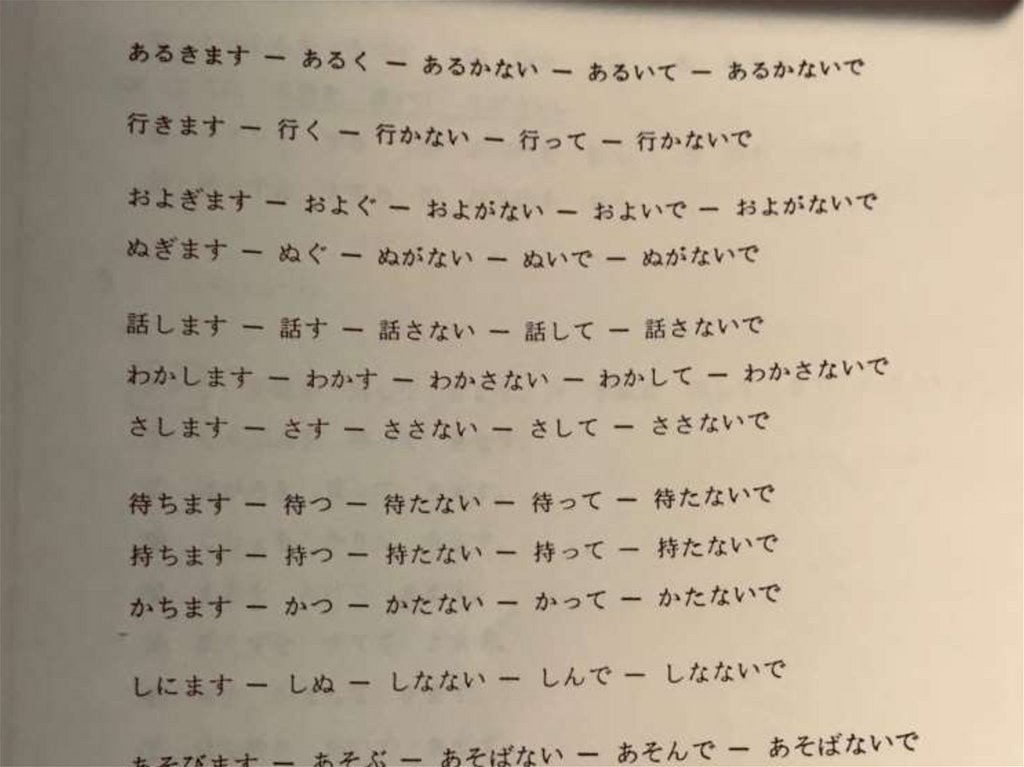 あるきます ー あるく ー あるかない ー あるいて ー あるかないで
行きます ー 行く ー 行かない ー 行って ー 行かないで
およぎます ー およぐ ー およがない ー およいで ー およがないで
ぬぎます ー ぬぐ ー ぬがない ー ぬいで ー ぬがないで
話します ー 話す ー 話さない ー 話して ー 話さないで
わかします ー わかす ー わかさない ー わかして ー わかさないで
さします ー さす ー ささない ー さして ー ささないで
待ちます ー 待つ ー 待たない ー 待って ー 待たないで
持ちます ー 持つ ー 持たない ー 持って ー 持たないで
かちます ー かつ ー かたない ー かって ー かたないで
しにます ー しぬ ー しなない ー しんで ー しなないで
あそびます ー あそぶ ー あそばない ー あそんで ー あそばないで